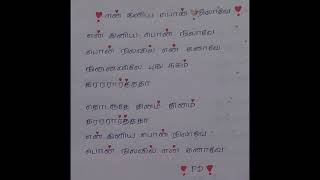 என் இனிய பொன் நிலாவே
என் இனிய பொன் நிலாவே
பொன் நிலவில் என் கனாவே
நினைவிலே புது சுகம்
தரரரார்த்ததா
தொடருதே தினம் தினம்
தரரரார்த்ததா
என் இனிய பொன் நிலாவே
பொன் நிலவில் என் கனாவே
PD